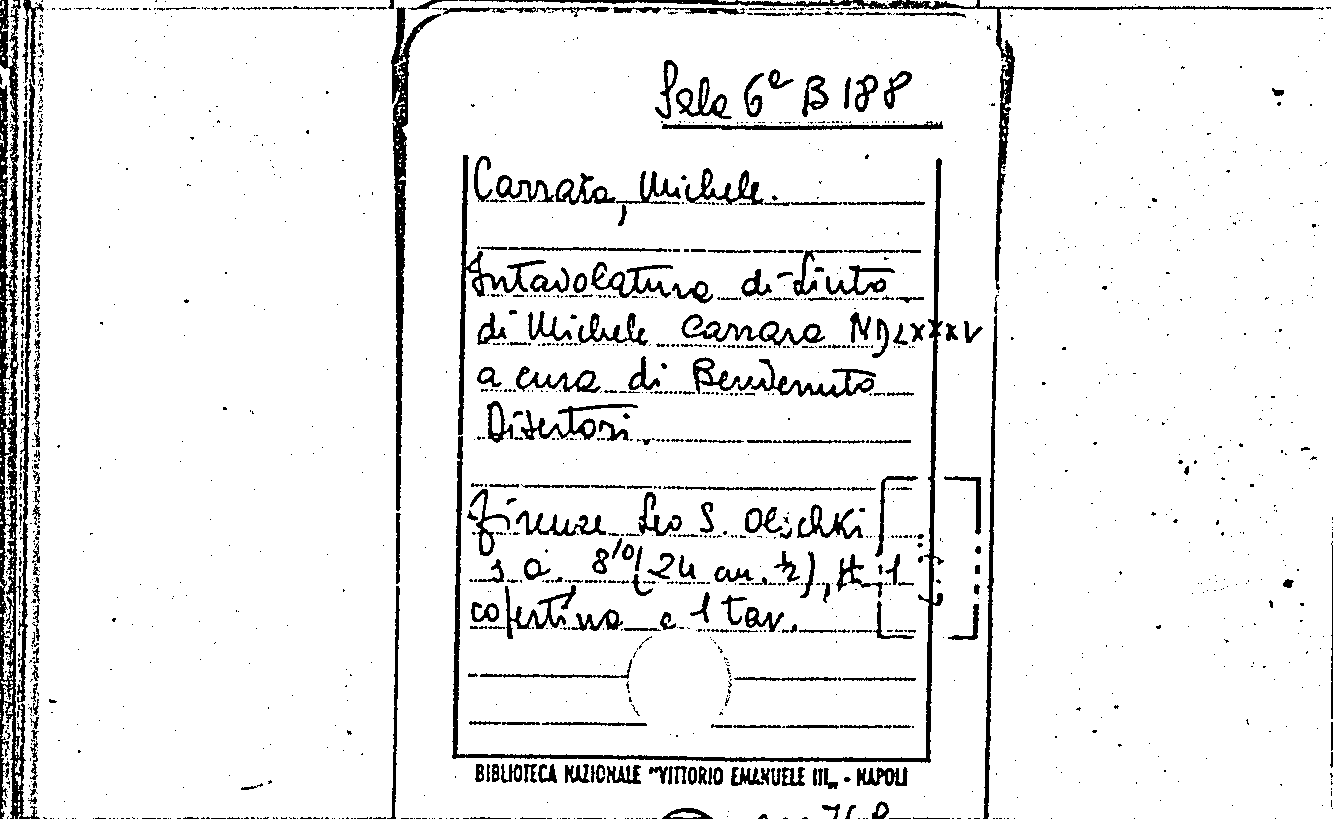 Sala 6ª B 188
Carrara, Michele.
Intavolatura di Liuto
di Michele Carrara MDLXXXV
a cura di Benvenuto
Disertori.
Firenze Leo S. Olschki
s. a. 8º (24 cm. ½),
copertina e 1 tav.
BIBLIOTECA NAZIONALE "VITTORIO EMANUELE III„ - NAPOLI